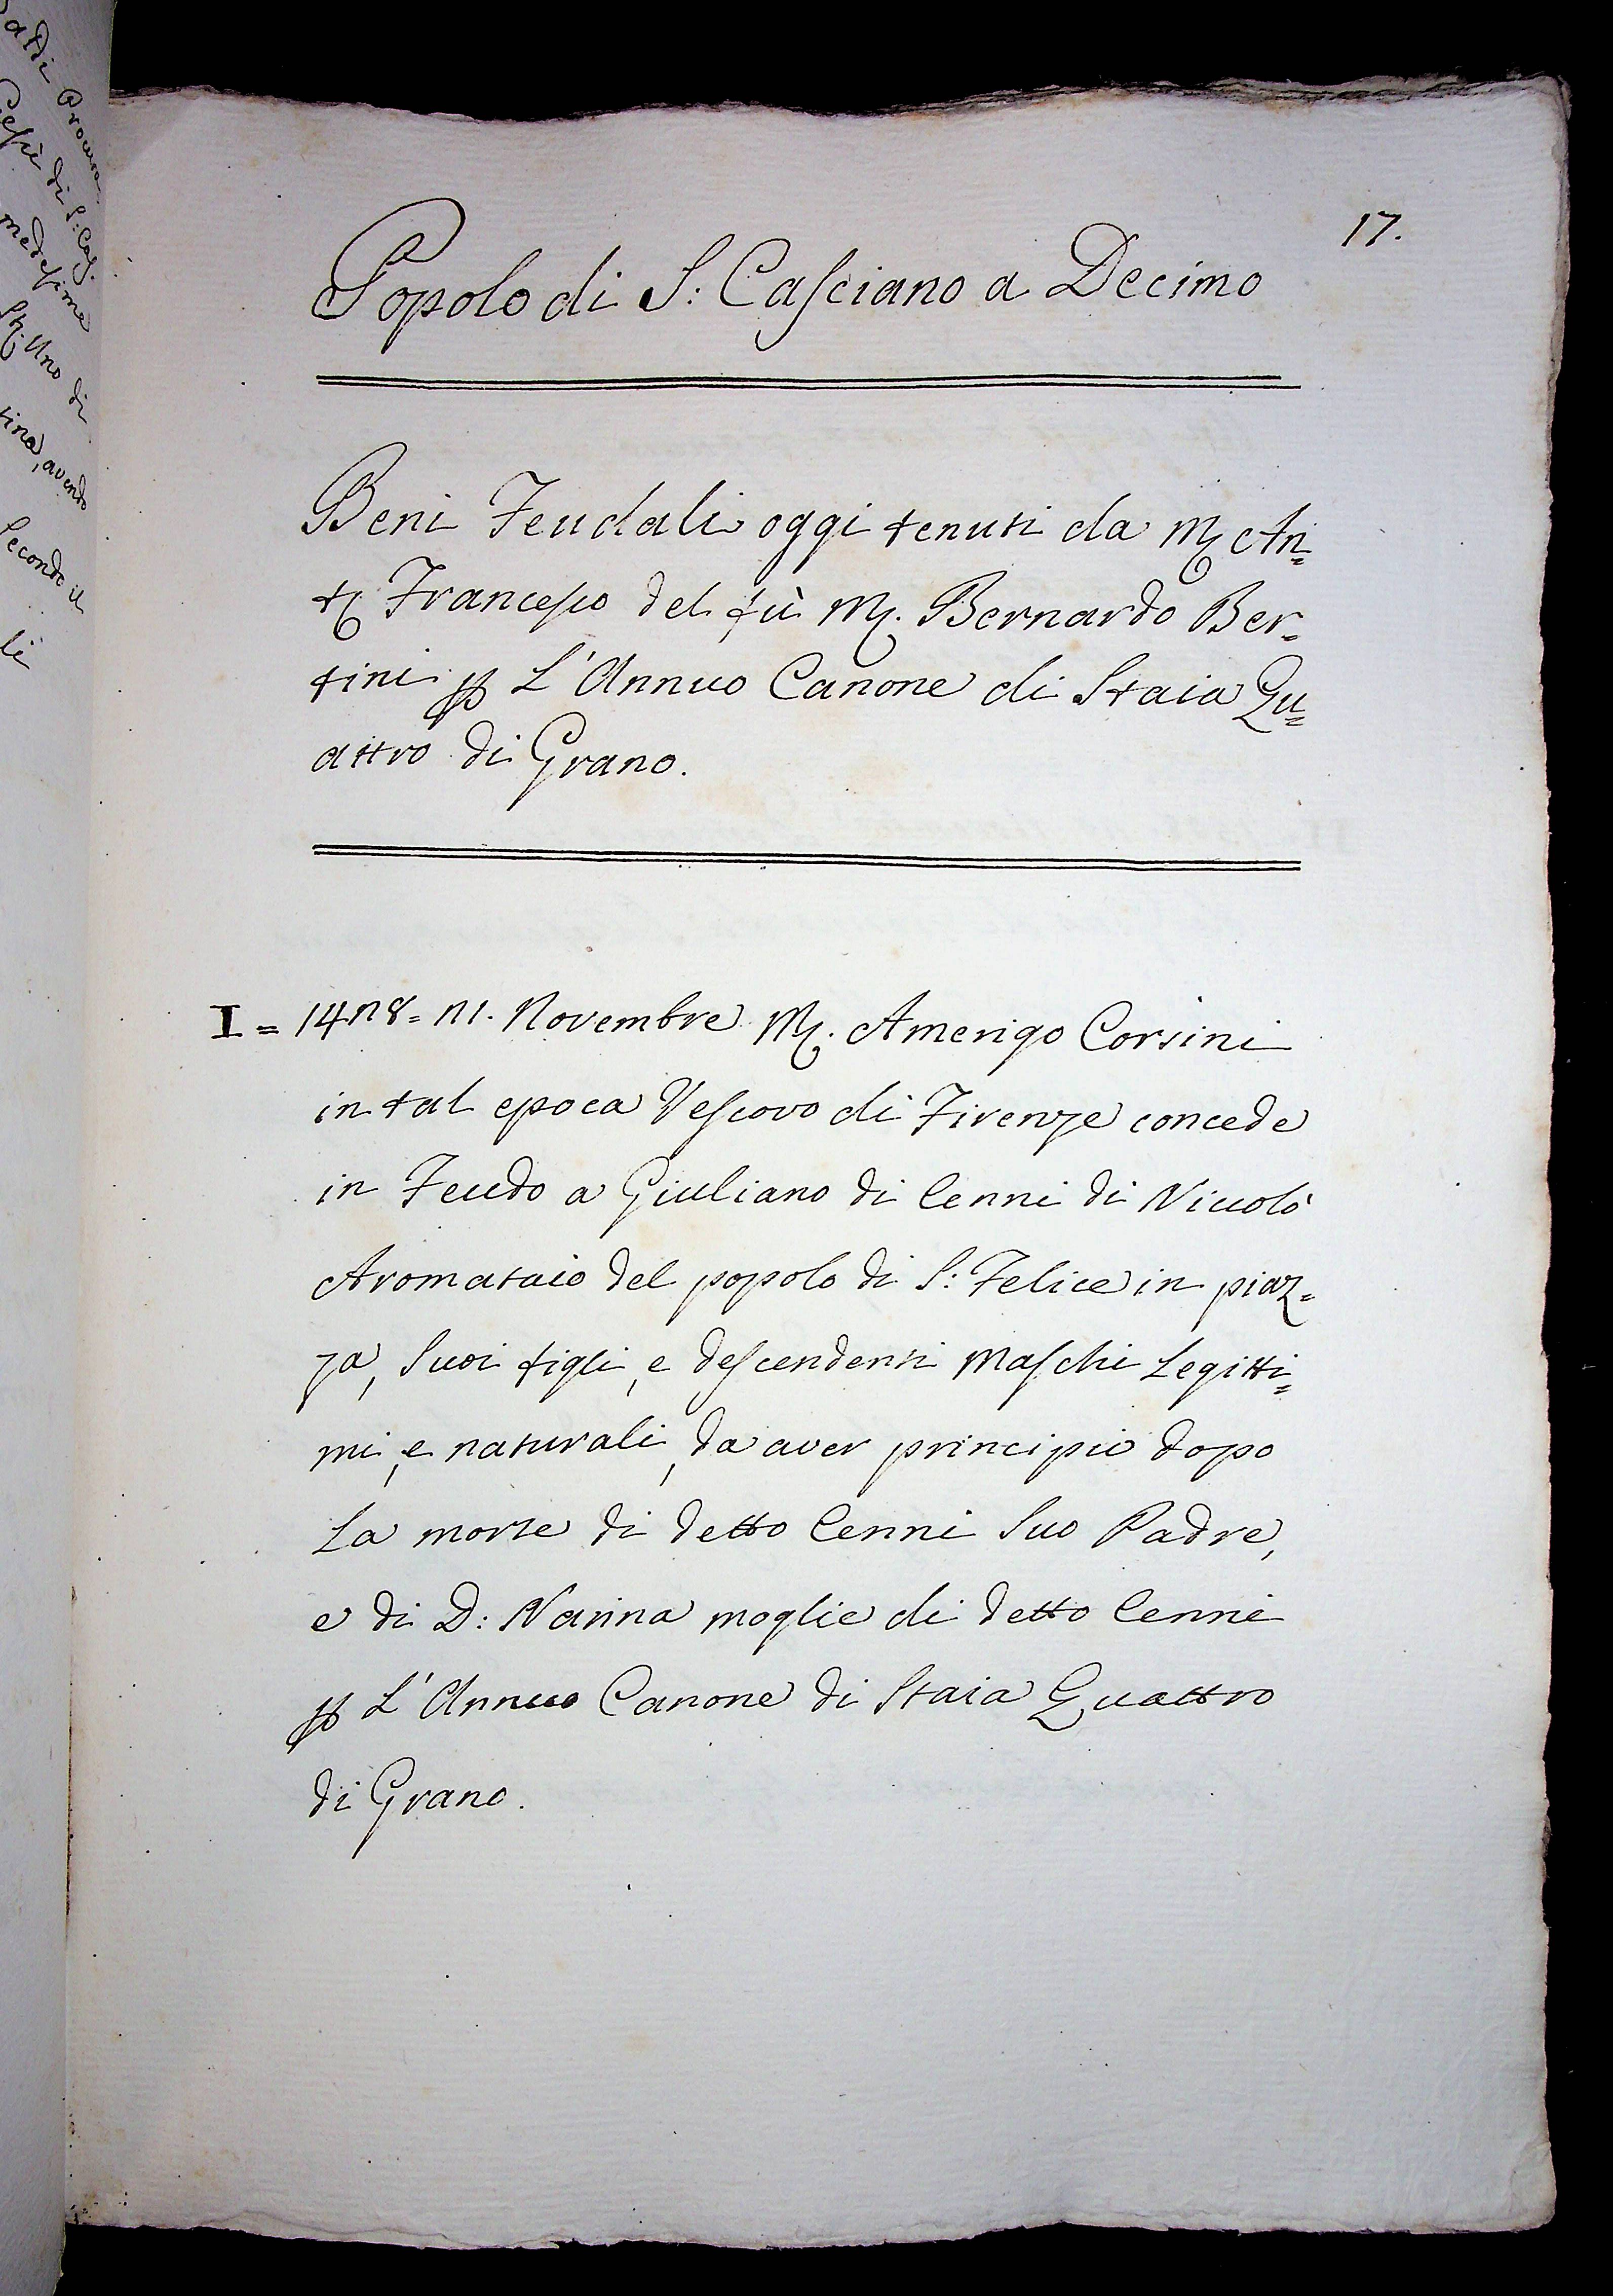 aldi Procura
Piessi di S: Cas.
medesime
Uno di
tina, avendo
Secondo il
li
17.
Popolo di S: Casciano a Decimo
Beni Feudali oggi tenuti da M. An=
t. Francesco del fù M. Bernardo Ber=
tini p L'Annuo Canone di Staia Qu=
attro di Grano.
I = 1428= 21. Novembre M. Amerigo Corsini
in tal epoca Vescovo di Firenze concede
in Feudo a Giuliano di Cenni di Niccolò
Aromataio del popolo di S: Felice in piaz=
za, Suoi figli, e descendenti Maschi Legitti=
mi, e naturali, da aver principio dopo
La morte di detto Cenni Suo Padre,
e di D: Nanna moglie di detto Cenni
p L'Annuo Canone di Staia Quattro
di Grano.